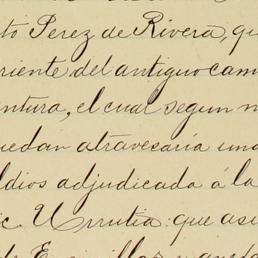 to Perez de Rivera, qu
riente del antiguo cam
ntura, el cual segun n
uedan atravesaria una
ldios adjudicada á la
ic Urrutia: que asi